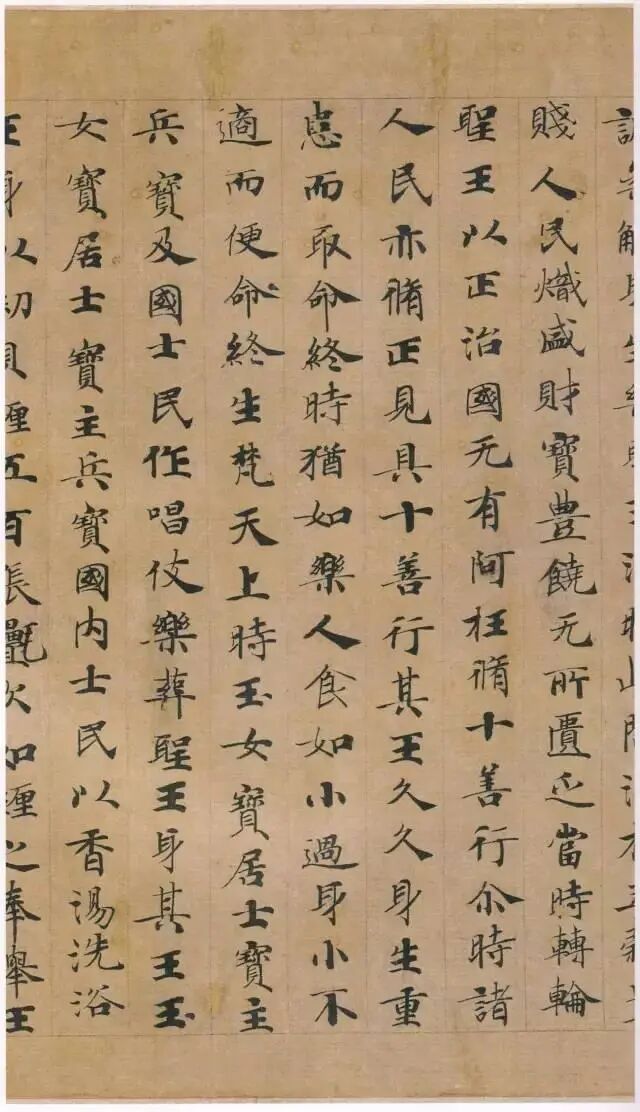 賤人民熾盛財寶豊饒无所匱乏當時轉輪
聖王以正治國无有阿枉脩十善行尒時諸
人民亦脩正見具十善行其王久久身生重
患而取命終時猶如樂人食如小過身小不
適而便命終生梵天上時玉女寶居士寶主
兵寶及國士民作唱伎樂葬聖王身其王玉
女寶居士寶主兵寶國内士民以香湯洗浴
王身以劫貝纏五百張氎次如纏之奉舉王